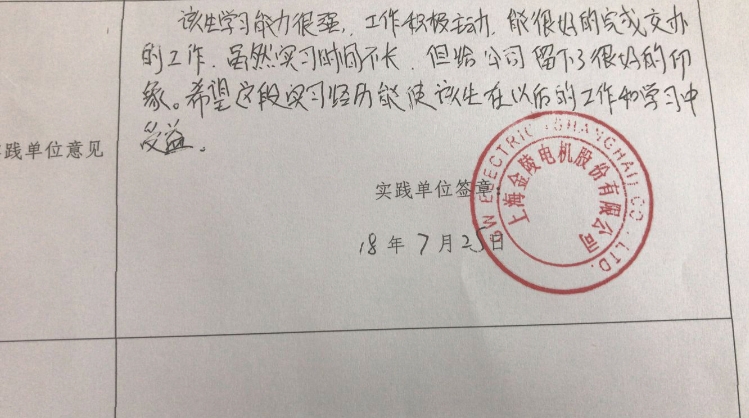 该生学习能力很强，工作积极主动，能很好的完成交办
的工作，虽然实习时间不长，但给公司留下了很好的印
象。希望这段实习经历能使该生在以后的工作和学习中
受益。
践单位意见
实践单位签章：
18年7月25日
ELECTRIC (SHANGHAI) CO., LTD.
上海金陵电机股份有限公司